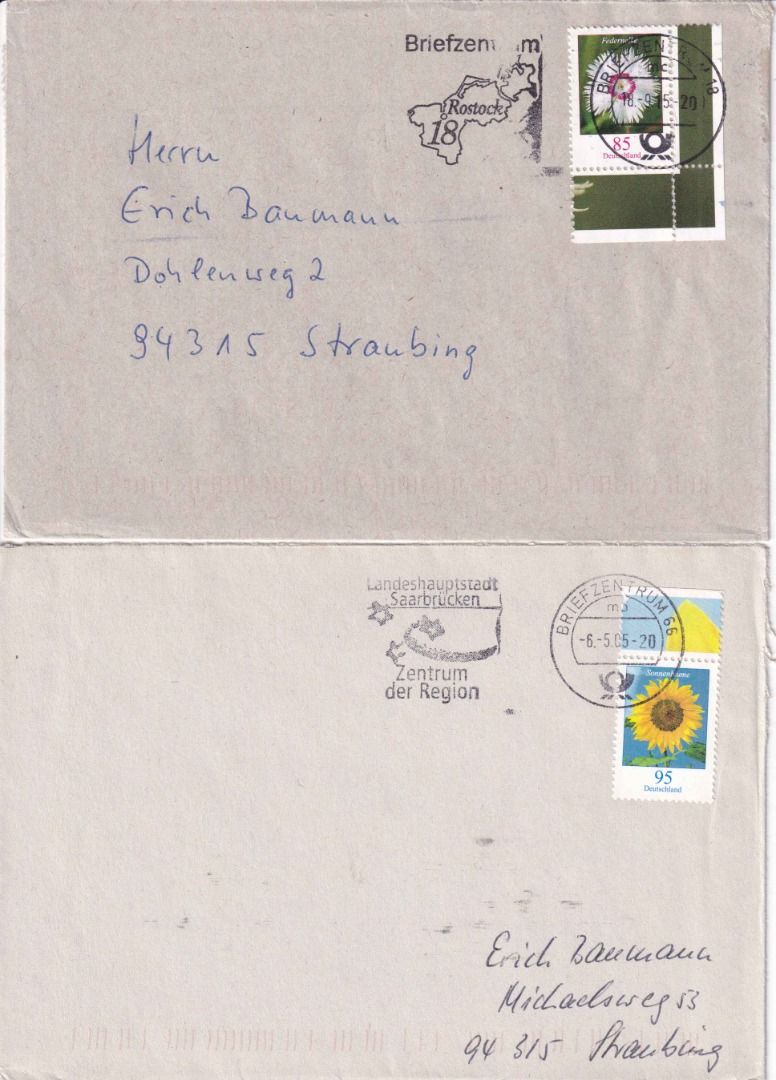 Briefzentrum
Rostock
18
Federnelke
85
Deutschland
BRIEFZENTRUM 18
mc
18.-9.15-20
Herrn
Erich Baumann
Dohlenweg 2
94315 Straubing
Landeshauptstadt
Saarbrücken
Zentrum
der Region
BRIEFZENTRUM 66
mb
-6.-5.05-20
Sonnenblume
95
Deutschland
Erich Baumann
Michaelsweg 53
94 315 Straubing